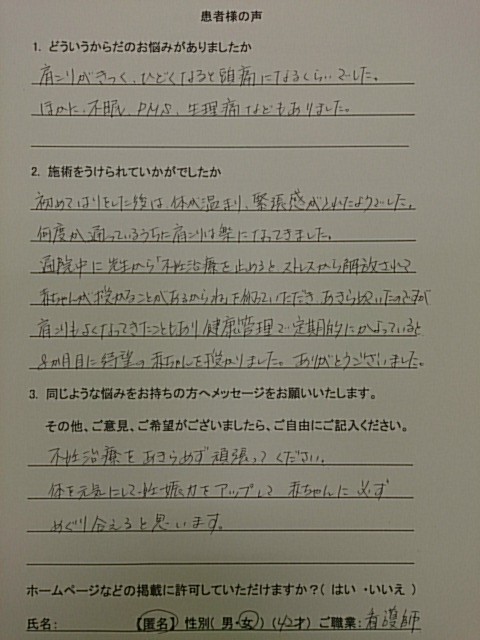 患者様の声
1. どういうからだのお悩みがありましたか
肩こりがきつく、ひどくなると頭痛になるくらいでした。
ほかに、不眠、PMS、生理痛などもありました。
2. 施術をうけられていかがでしたか
初めてはりをした後は、体が温まり、緊張感がとれたようでした。
何度か通っているうちに肩こりは楽になってきました。
通院中に先生から「不妊治療を止めると、ストレスから解放されて
赤ちゃんが授かることがあるからね」と いただき あきらめていたのですが
肩こりもよくなってきたこともあり 健康管理で定期的にかよっていると
8か月目に待望の赤ちゃんを授かりました。ありがとうございました。
3. 同じような悩みをお持ちの方へメッセージをお願いいたします。
その他、ご意見、ご希望がございましたら、ご自由にご記入ください。
不妊治療をあきらめず頑張ってください。
体を元気にして妊娠力をアップして 赤ちゃんに必ず
めぐり合えると思います。
ホームページなどの掲載に許可していただけますか?( はい ・いいえ )
氏名: 【匿名】 性別( 男・女 ) (42才) ご職業: 看護師